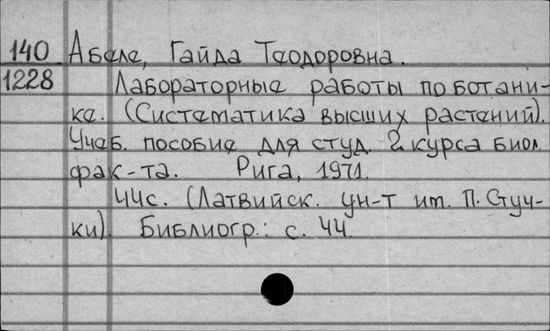 140 Абеле, Гайда Теодоровна.
1228 Лабораторные работы по ботани-
ке. (Систематика высших растений).
Учеб. пособие для студ. 2 курса биол.
фак-та. Рига, 1971.
44с. (Латвийск. ун-т им. П. Стуч-
ки). Библиогр.: с. 44.